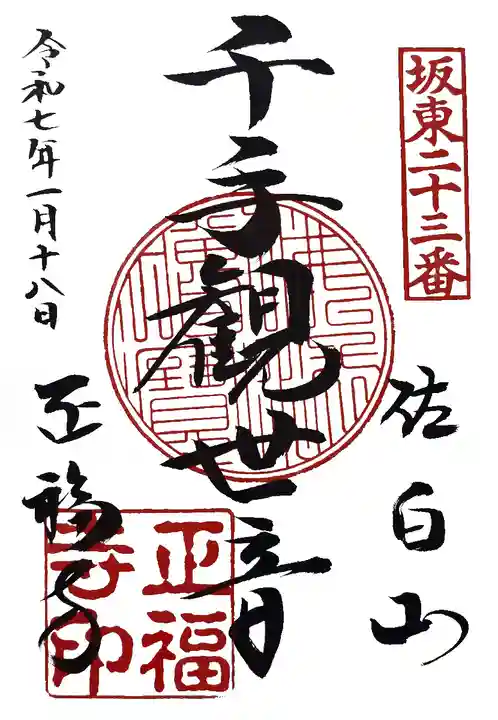 坂東二十三番
佐白山
千手觀世音
令和七年一月十八日
正福寺
正福
寺印